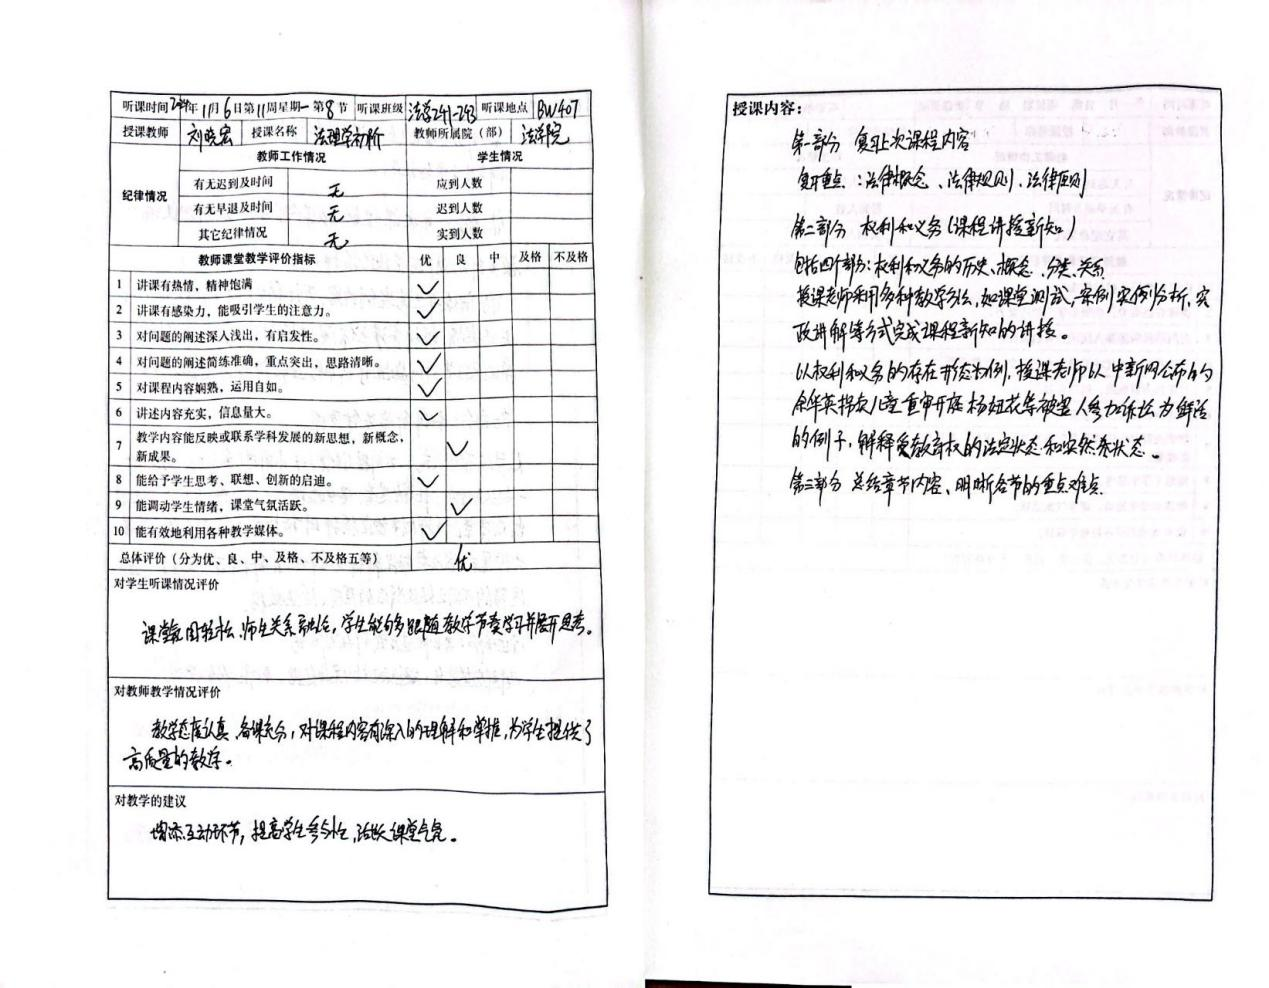 听课时间2024年11月6日第11周星期一第8节 听课班级 法学241-243 听课地点 BW407
授课教师 刘晓宏 授课名称 法理学初阶 教师所属院（部） 法学院
纪律情况 教师工作情况 学生情况
有无迟到及时间 无 应到人数
有无早退及时间 无 迟到人数
其它纪律情况 无 实到人数
教师课堂教学评价指标 优 良 中 及格 不及格
1 讲课有热情，精神饱满 ✓
2 讲课有感染力，能吸引学生的注意力。 ✓
3 对问题的阐述深入浅出，有启发性。 ✓
4 对问题的阐述简练准确，重点突出，思路清晰。 ✓
5 对课程内容娴熟，运用自如。 ✓
6 讲述内容充实，信息量大。 ✓
7 教学内容能反映或联系学科发展的新思想，新概念，
新成果。 ✓
8 能给予学生思考、联想、创新的启迪。 ✓
9 能调动学生情绪，课堂气氛活跃。 ✓
10 能有效地利用各种教学媒体。 ✓
总体评价（分为优、良、中、及格、不及格五等） 优
对学生听课情况评价
课堂氛围轻松、师生关系融洽，学生能够跟随教学节奏学习并展开思考。
对教师教学情况评价
教学态度认真、备课充分，对课程内容有深入的理解和掌握，为学生提供了
高质量的教学。
对教学的建议
增添互动环节，提高学生参与性，活跃课堂气氛。
授课内容：
第一部分 复习上次课程内容
复习重点：法律概念、法律规则、法律原则
第二部分 权利和义务（课程讲授新知）
包括四个部分：权利和义务的历史、概念、分类、关系
授课老师采用多种教学方法，如课堂测试，案例实例分析，实
政讲解等方式完成课程新知的讲授。
以权利和义务的存在形态为例，授课老师以中新网公布的
余华英拐卖儿童重审开庭杨妞花等被害人参加诉讼为鲜活
的例子，解释受教育权的法定状态和实然状态。
第三部分 总结章节内容、明晰各节的重点难点